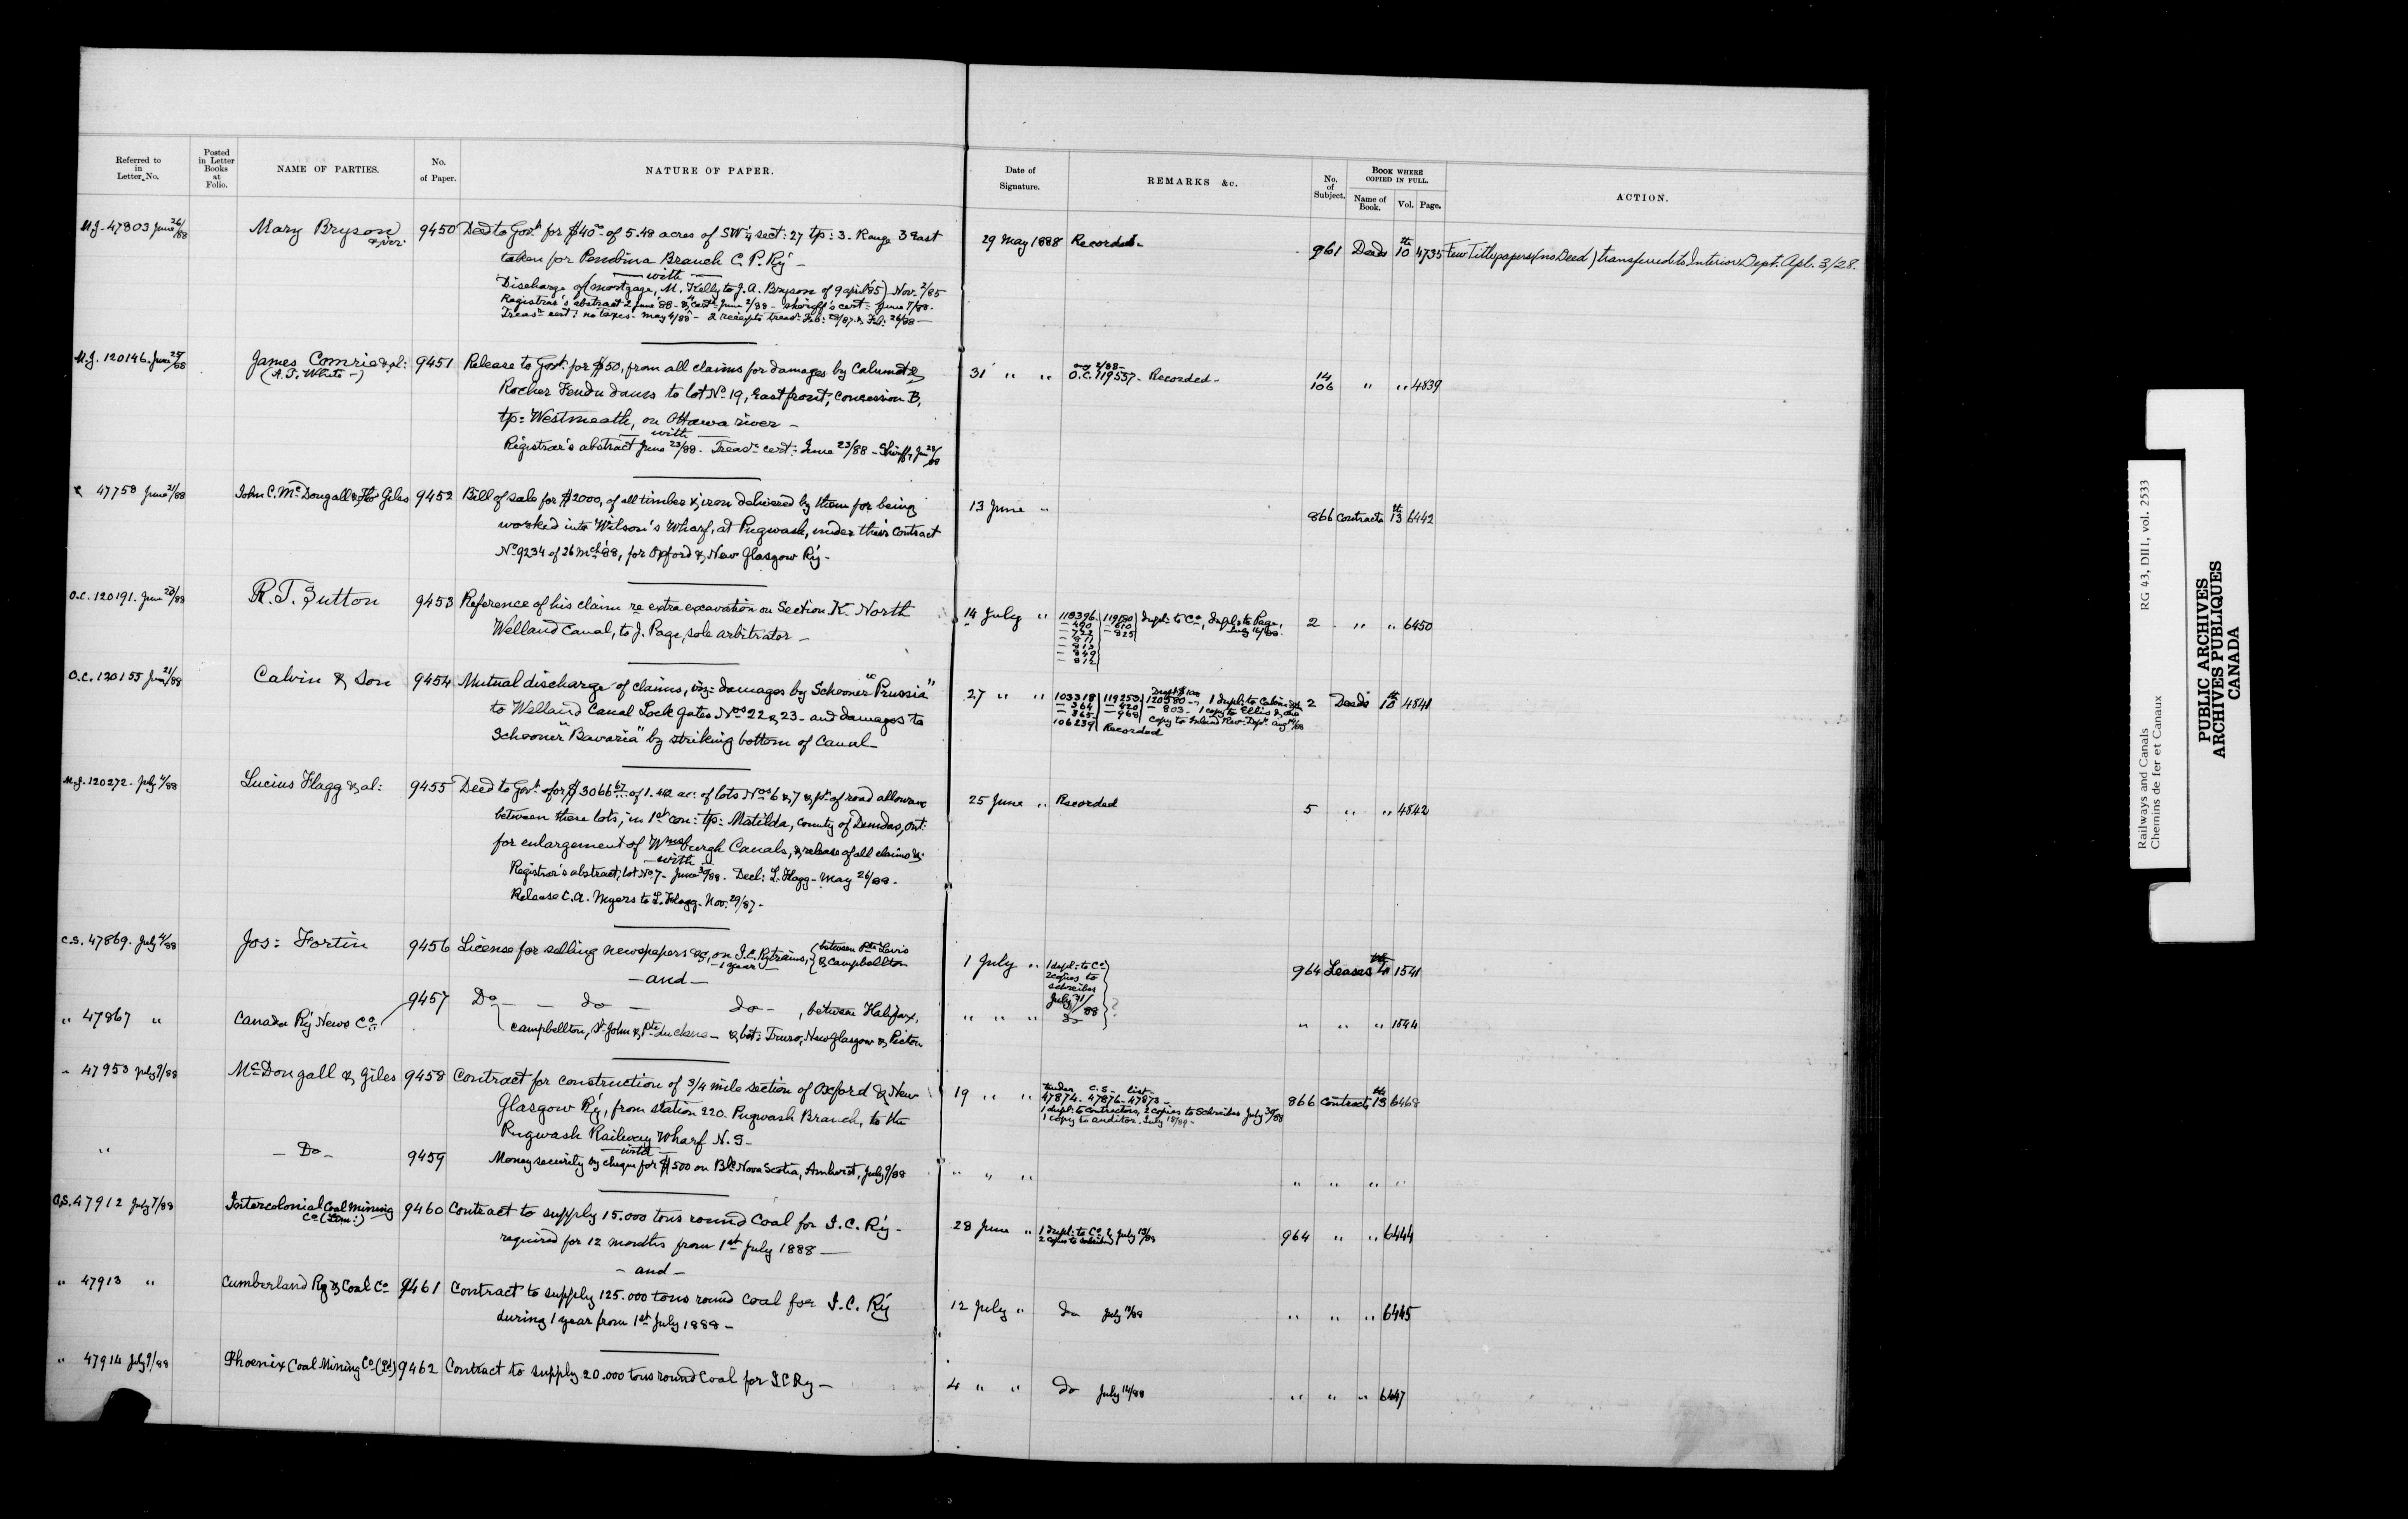 Referred to in Letter No.
Posted in Letter Books at Folio.
NAME OF PARTIES.
No. of Paper.
NATURE OF PAPER.
Date of Signature.
REMARKS &c.
No. of Subject.
BOOK WHERE COPIED IN FULL.
Name of Book.
Vol.
Page.
ACTION.
M.J. 47803 June 26/88 Mary Bryson 9450 Deed to Govt for $40 00 of 5.48 acres of SW 1/4 sect: 27 tp: 3. Range 3 East 29 May 1888 Recorded 961 Deeds 10th 4735 Few Title papers (no Deed) transferred to Interior Dept. Apl. 3/28.
taken for Pembina Branch C. P. Ry —
— with —
Discharge of mortgage, M. Kelly to J. A. Bryson of 9 april 85) Nov. 2/85
Registrar's abstract 2 June 88 - & cert: June 2/88 - sheriff's cert: June 7/88.
Treasr cert: no taxes - May 4/88 - 2 receipts treasr Feb: 28/87 & Feb: 26/88 —
M.J. 120146. June 25/88 James Comrie & al: 9451 Release to Govt for $50, from all claims for damages by Calumet & 31 " " O.C. 119537 - Recorded - 14 106 " " 4839
(A. T. White -)
Rocher Fendu dams to lot No 19, East front, Concession B,
tp: Westmeath, on Ottawa river —
— with —
Registrar's abstract June 23/88. Treasr cert: June 23/88 - Sheriff's Jun 23/88
47758 June 21/88 John C. McDougall & Thos Giles 9452 Bill of sale for $2000, of all timber & iron delivered by them for being 13 June " 866 Contracts 13th 6442
worked into Wilson's Wharf, at Pugwash, under their contract
No 9234 of 26 mch 88, for Oxford & New Glasgow Ry -
O.C. 120191. June 23/88 R. T. Sutton 9453 Reference of his claim re extra excavation on Section K. North 14 July " 2 " " 6450
Welland Canal, to J. Page, sole arbitrator —
118396 119150 dupl: to Co, dupl: to Page,
July 16/88.
O.C. 120155 June 21/88 Calvin & Son 9454 Mutual discharge of claims, viz: damages by Schooner "Prussia" 27 " " 2 Deeds 10th 4841
to Welland Canal Lock gates Nos 22 & 23 - and damages to
Schooner "Bavaria" by striking bottom of Canal —
103318 119253 120580
364 420 803 - 1 copy to Ellis
365 468 Copy to Inland Rev: Dept. Aug 14/88
106239 Recorded
M.J. 120272. July 4/88 Lucius Flagg & al: 9455 Deed to Govt for $3066 67 of 1.42 ac: of lots Nos 6 & 7 & pt of road allowance 25 June " Recorded 5 " " 4842
between these lots, in 1st con: tp: Matilda, county of Dundas, Ont:
for enlargement of Wmsburgh Canals, & release of all claims &c
— with —
Registrar's abstract, lot No 7 - June 30/88. Decl: L. Flagg - May 26/88.
Release C. A. Myers to L. Flagg - Nov. 29/87 -
C.S. 47869. July 4/88 Jos: Fortin 9456 License for selling newspapers &c, on I.C. Ry trains, (between Pte Levis & Campbellton 1 July " 1 dupl: to Co 964 Leases 1541
— 1 year —
2 copies to
schreiber
July 31/88
— and —
" 47867 " Canada Ry News Co 9457 Do — do — do - , between Halifax, " " " do " " " 1544
Campbellton, St John & Pte du chene - & bet: Truro, New Glasgow & Pictou
" 47953 July 9/88 McDougall & Giles 9458 Contract for construction of 3/4 mile section of Oxford & New 19 " " 866 Contracts 13th 6468
tender C.S. list
47874. 47876 - 47873 -
1 dupl: to contractors, 2 copies to Schreiber July 30/88
1 copy to auditor. July 18/89 -
Glasgow Ry, from station 220. Pugwash Branch, to the
Pugwash Railway Wharf N. S -
— with —
" — Do — 9459 Money security by cheque for $500 on Bk Nova Scotia, Amherst, July 9/88 " " " " " " "
C.S. 47912 July 7/88 Intercolonial Coal Mining Co (Lim:) 9460 Contract to supply 15.000 tons round coal for I. C. Ry - 28 June " 1 dupl: to Co & July 13/88 964 " " 6444
2 copies to Schreiber
required for 12 months from 1st July 1888 —
— and —
" 47913 " Cumberland Ry & Coal Co 9461 Contract to supply 125.000 tons round coal for I. C. Ry 12 July " do July 13/88 " " " 6445
during 1 year from 1st July 1888 —
" 47914 July 9/88 Phoenix Coal Mining Co (Ld) 9462 Contract to supply 20.000 tons round coal for I C Ry — 4 " " do July 14/88 " " " 6447
Railways and Canals
Chemins de fer et Canaux
RG 43, DII1, vol. 2533
PUBLIC ARCHIVES
ARCHIVES PUBLIQUES
CANADA